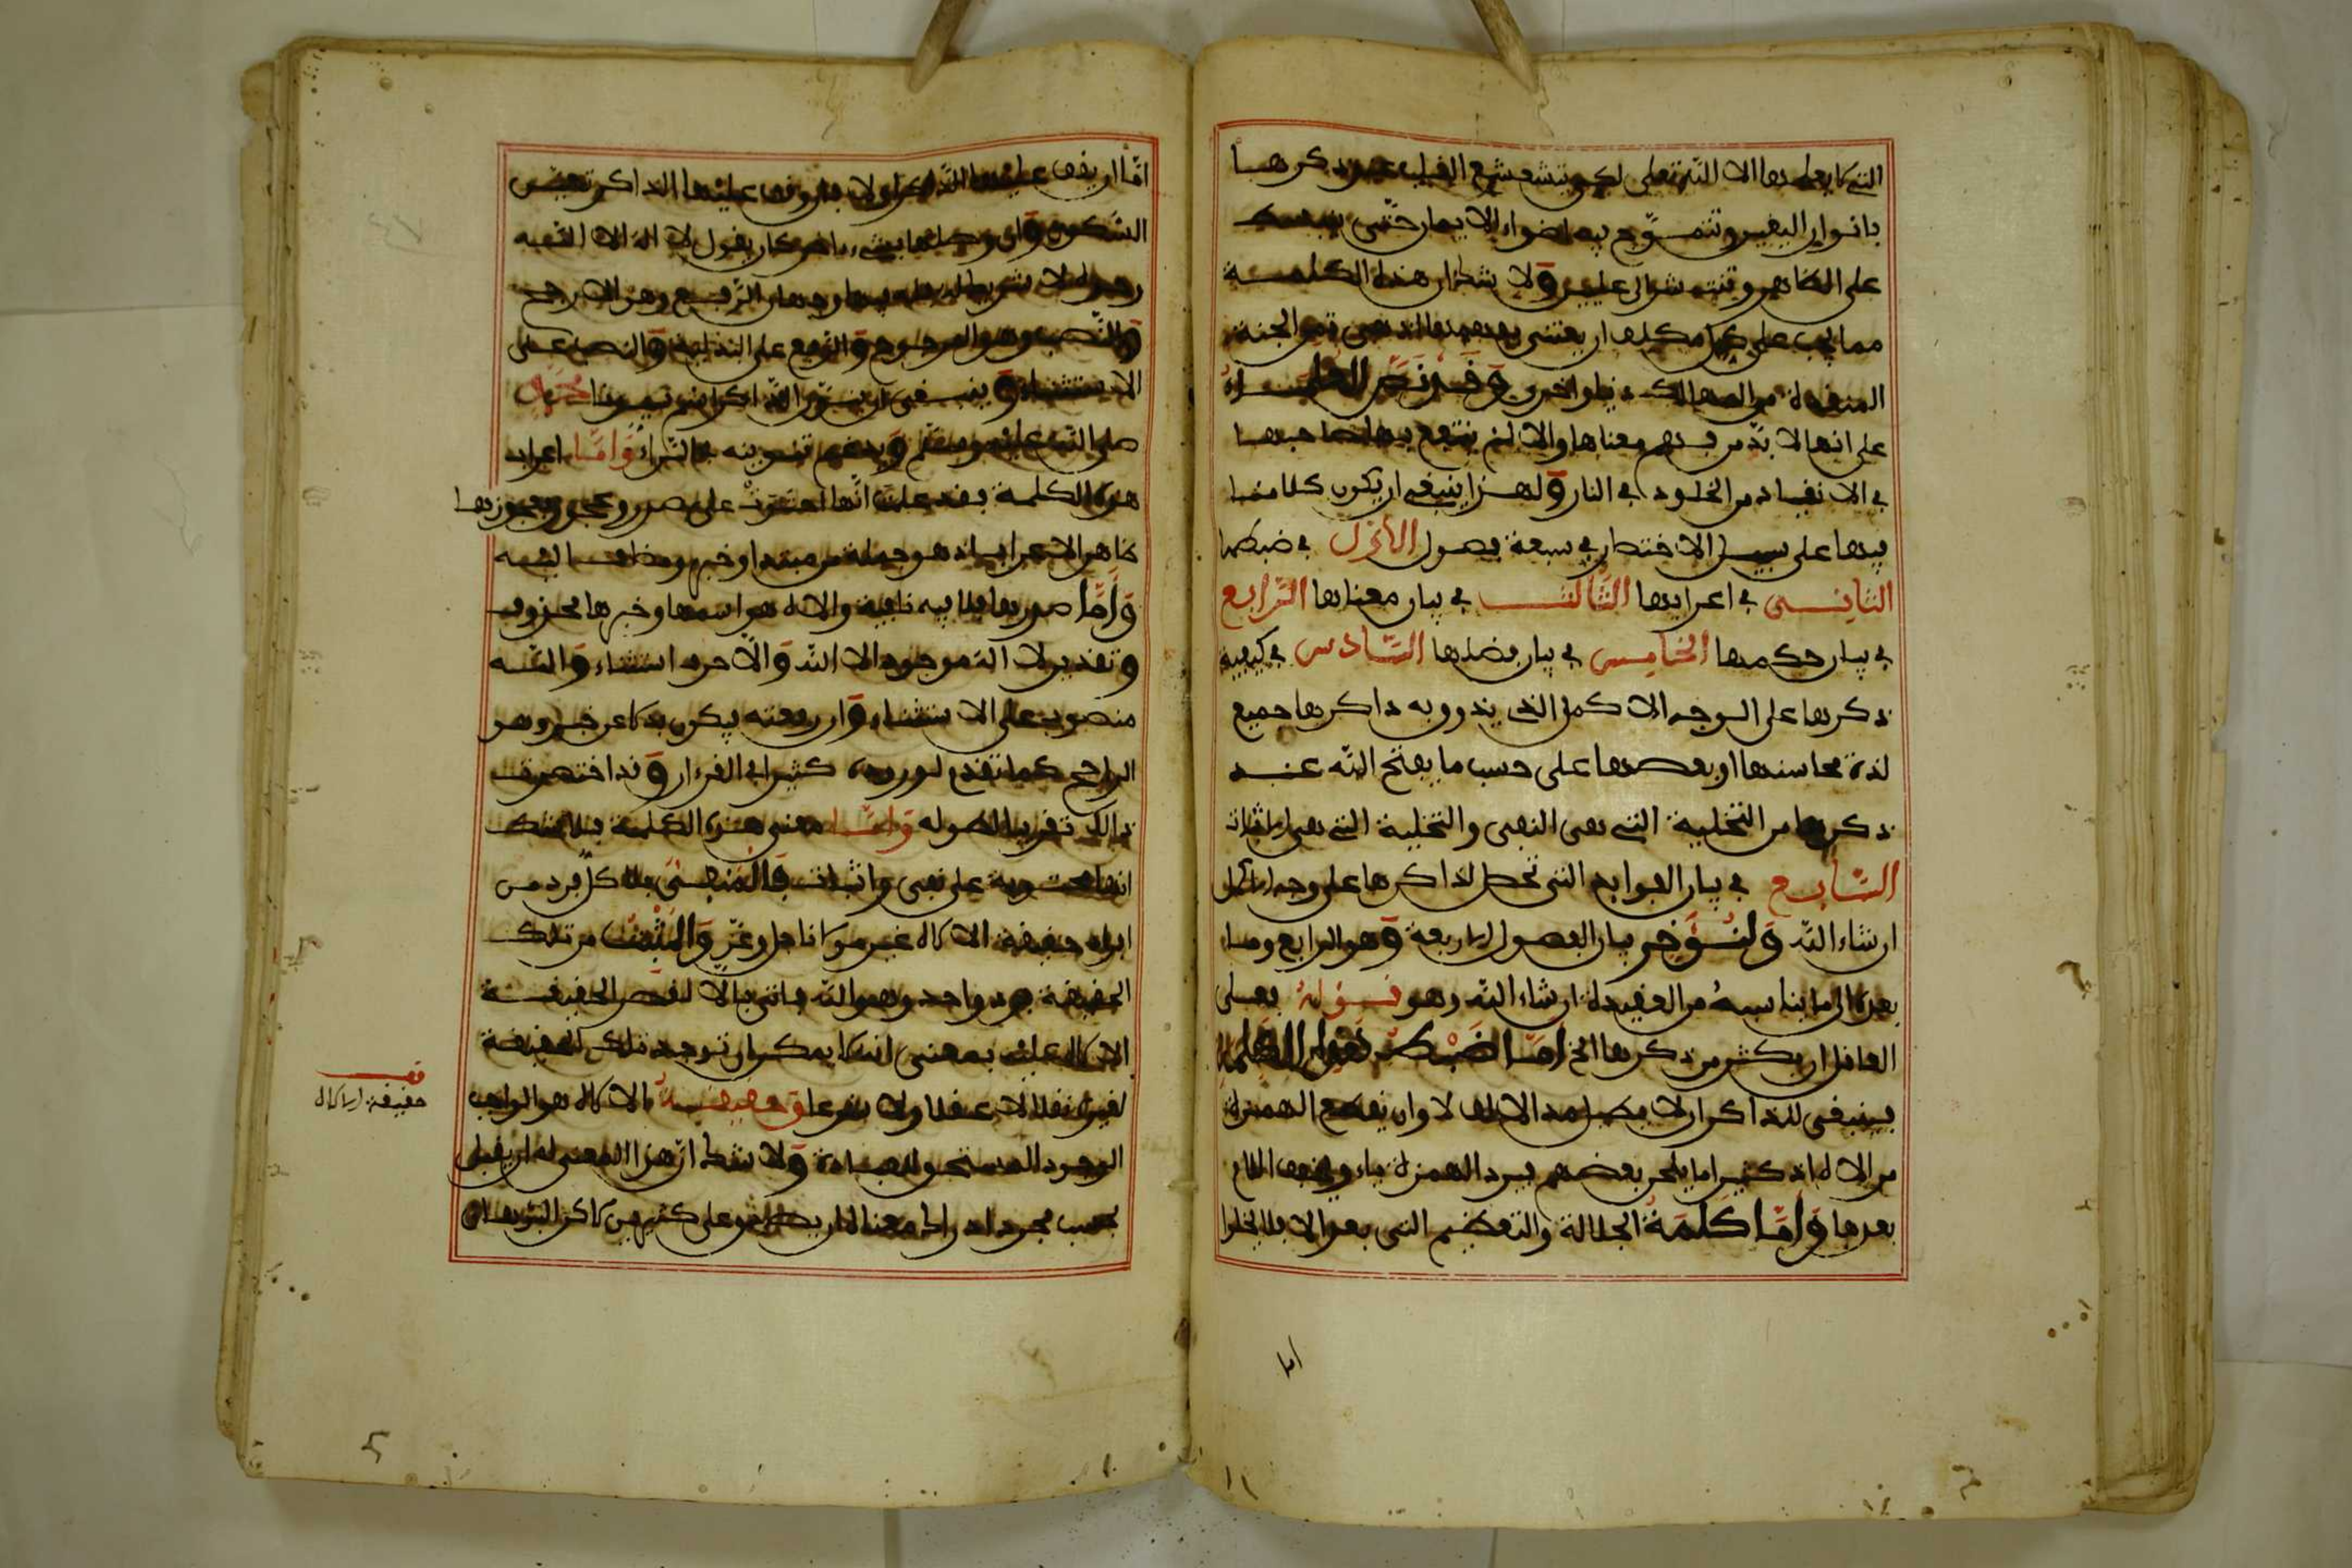 التي لا يعلمها الا الله تعلى لكي يتشعشع القلب عند ذكرها
بانوار اليقين وتتموج فيه اضواء الايمان حتى ينبسط
على الظاهر وتنتشر الى عليين ولا شك ان هذه الكلمة
مما يجب على كل مكلف ان يعتني بفهمها اذ هي ثمن الجنة
المنقذة من المهالك دنيا واخرى وقد نص العلماء
على انها لا بد من فهم معناها والا لم ينتفع بها صاحبها
في الانقاذ من الخلود في النار ولهذا ينبغي ان يكون كلامنا
فيها على سبيل الاختصار في سبعة فصول الاول في ضبطها
الثاني في اعرابها الثالث في بيان معناها الرابع
في بيان حكمها الخامس في بيان فضلها السادس في كيفية
ذكرها على الوجه الاكمل الذي يذوق به ذاكرها جميع
لذة محاسنها او بعضها على حسب ما يفتح الله عند
ذكرها من التخلية التي هي النفي والتحلية التي هي الاثبات
السابع في بيان الفوايد التي تحصل لذاكرها على وجه الاكمل
ان شاء الله ولنؤخر بيان الفصول الاربعة وهو الرابع وما
بعده الى ما يناسبه من العقيدة ان شاء الله وهو قوله فعلى
العاقل ان يكثر من ذكرها الخ اما الضبط فقول العلماء
فينبغي للذاكر ان لا يطيل مد الالف لا وان يقطع الهمزة
من الاله اذ كثيرا ما يلحن بعضهم فيرد الهمزة ياء ويخفف اللام
بعدها واما كلمة الجلالة والتعظيم التي بعد الا فلا يخلوا
اما
اما ان يقف عليها الذاكر او لا فان وقف عليها الذاكر تعين
السكون وان وصلها بشيء ءاخر كان يقول لا اله الا الله
وحده لا شريك له فله فيها وجهان الرفع وهو الارجح
والنصب وهو المرجوح والرفع على البدلية والنصب على
الاستثناء وينبغي ان ينون الذاكر اسم سيدنا محمد
صلى الله عليه وسلم ويدغم تنوينه في الراء واما اعراب
هذه الكلمة فقد علمت انها احتوت على صدر وعجز وعجزها
ظاهر الاعراب اذ هو جملة من مبتدا وخبر ومضاف اليه
واما صدرها فلا فيه نافية والاله هو اسمها وخبرها محذوف
وتقديره لا اله موجود الا الله والا حرف استثناء والله
منصوب على الاستثناء وان رفعته فيكون بدلا عن خبر وهو
الراجح كما تقدم لوروده كثيرا في القرءان وقد اختصرت
ذالك تقريبا لطوله واما معنى هذه الكلمة فلا شك
انها محتوية على نفي واثبات فالمنفي فلا كل فرد من
افراد حقيقة الاله غير مولانا جل وعز والمثبت من تلك
الحقيقة فرد واحد وهو الله فاتي بالا لقصر الحقيقة
الاله عليه بمعنى انه لا يمكن ان توجد تلك الحقيقة
لغيره تعلى لا عقلا ولا شرعا وحقيقة الاله هو الواجب
الوجود المستحق للعبادة ولا شك ان هذا المعنى له ان يقبل
بحسب مجرد ادراك معناه ان يصدق على كثيرين لاكن البرهان
قف
حقيقة الاله